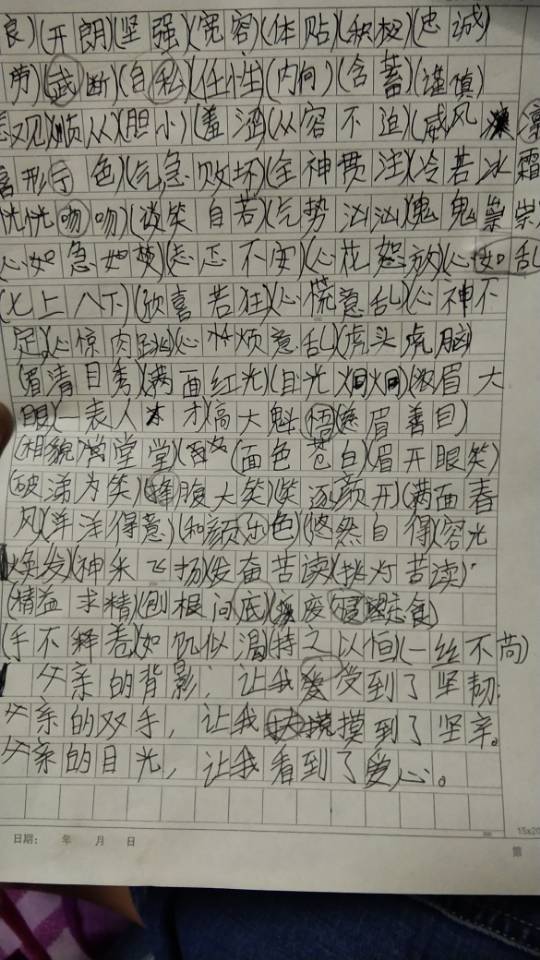 良)(开朗)(坚强)(宽容)(体贴)(积极)(忠诚)
劳)(武断)(自私)(任性)(内向)(含蓄)(谨慎)
观)(顺从)(胆小)(羞涵)(从容不迫)(威风凛
喜形于色)(气急败坏)(全神贯注)(冷若冰霜
恍恍吻吻)(谈笑自若)(气势汹汹)(鬼鬼祟祟)
心如急如焚)(忐忑不安)(心花怒放)(心如乱
(七上八下)(欣喜若狂)(心慌意乱)(心神不
足)(心惊肉跳)(心烦意乱)(虎头虎脑)
(眉清目秀)(满面红光)(目光炯炯)(浓眉大
眼)(一表人才)(高大魁悟)(慈眉善目)
(相貌堂堂堂)(面色苍白)(眉开眼笑)
(破涕为笑)(捧腹大笑)(笑逐颜开)(满面春
风)(洋洋得意)(和颜乐色)(悠然自得)(容光
焕发)(神采飞扬)(发奋苦读)(挑灯苦读)
(精益求精)(刨根问底)(废寝忘食)
(手不释卷)(如饥似渴)(持之以恒)(一丝不苟)
父亲的背影，让我受到了坚韧；
父亲的双手，让我摸到了坚辛。
父亲的目光，让我看到了爱心。
日期： 年 月 日
15x20
第